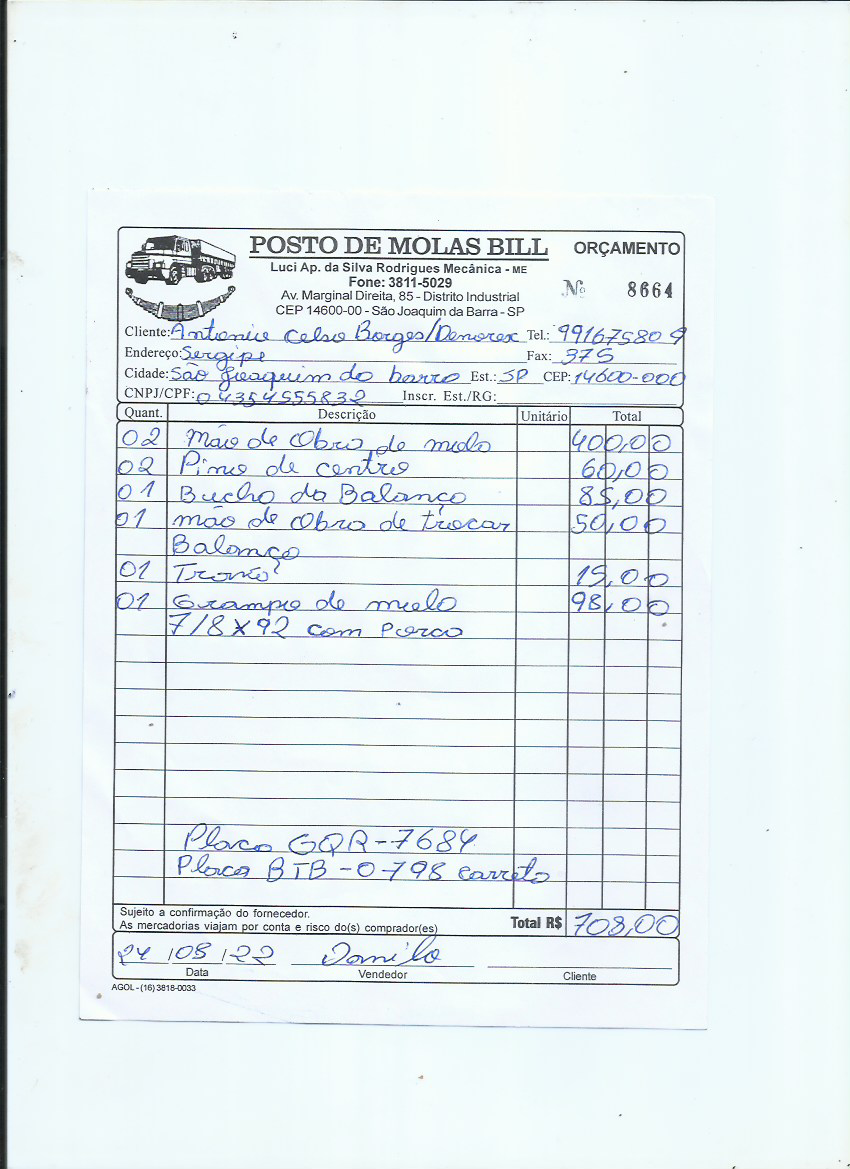 POSTO DE MOLAS BILL ORÇAMENTO
Luci Ap. da Silva Rodrigues Mecânica - ME
Fone: 3811-5029
Nº 8664
Av. Marginal Direita, 85 - Distrito Industrial
CEP 14600-00 - São Joaquim da Barra - SP
Cliente: Antonio Celso Borges/Denorex Tel.: 991675809
Endereço: Sergipe Fax: 375
Cidade: São Joaquim da barra Est.: SP CEP: 14600-000
CNPJ/CPF: 04354555832 Inscr. Est./RG:
Quant. Descrição Unitário Total
02 Mão de Obra de mola 400,00
02 Pino de centro 60,00
01 Bucha da Balança 85,00
01 mão de Obra de trocar 50,00
Balança
01 15,00
01 Grampo de mola 98,00
7/8 X 92 com Porca
Placa GQR-7684
Placa BTB-0798 carreta
Sujeito a confirmação do fornecedor.
As mercadorias viajam por conta e risco do(s) comprador(es) Total R$ 708,00
24/08/22 Danilo
Data Vendedor Cliente
AGOL - (16) 3818-0033